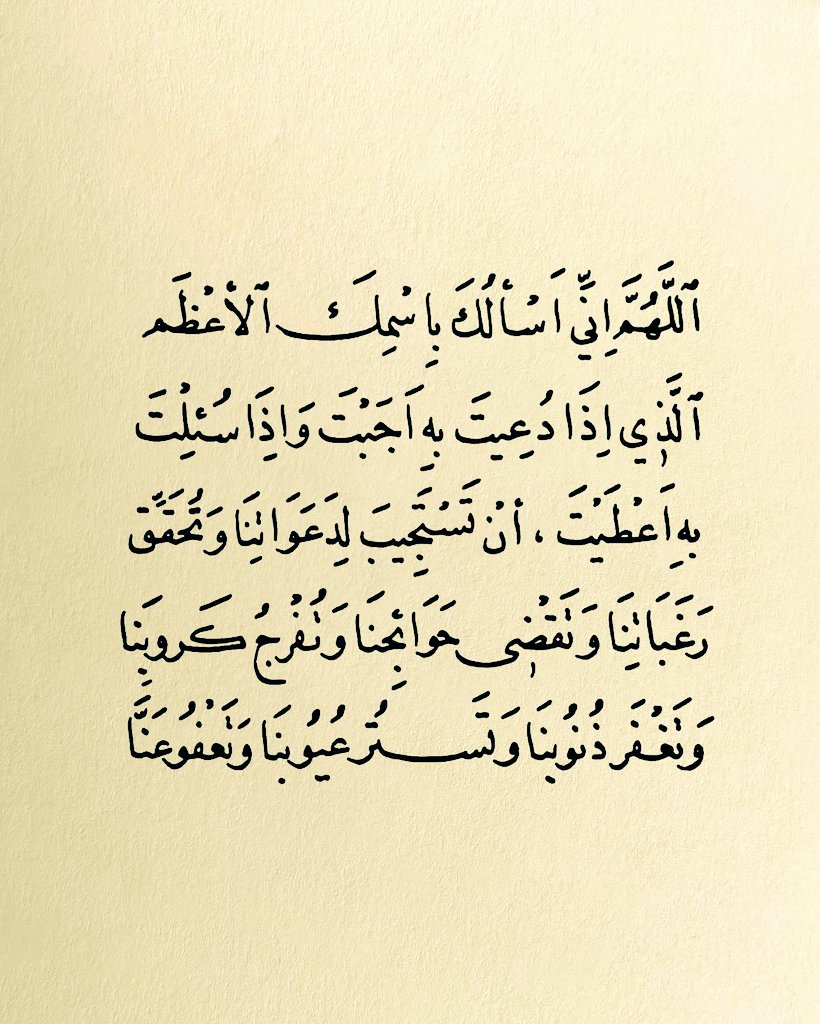 ٱللَّهُمَّ اِنِّي اَسْألُكَ بِاسْمِكَ ٱلأعْظَم
ٱلَّذِي اِذَا دُعِيتَ بِهِ اَجَبْتَ وَاِذَا سُئلْتَ
بِهِ اَعْطَيْتَ ، أنْ تَسْتَجِيبَ لِدَعَوَاتِنَا وَتُحَقِّق
رَغَبَاتِنَا وَتَقْضِى حَوَائِجنَا وَتُفْرجُ كَروبِنا
وَتَغْفَر ذُنُوبِنَا وَتَسـتُر عُيُوبِنَا وَتَعْفُوعَنَّا